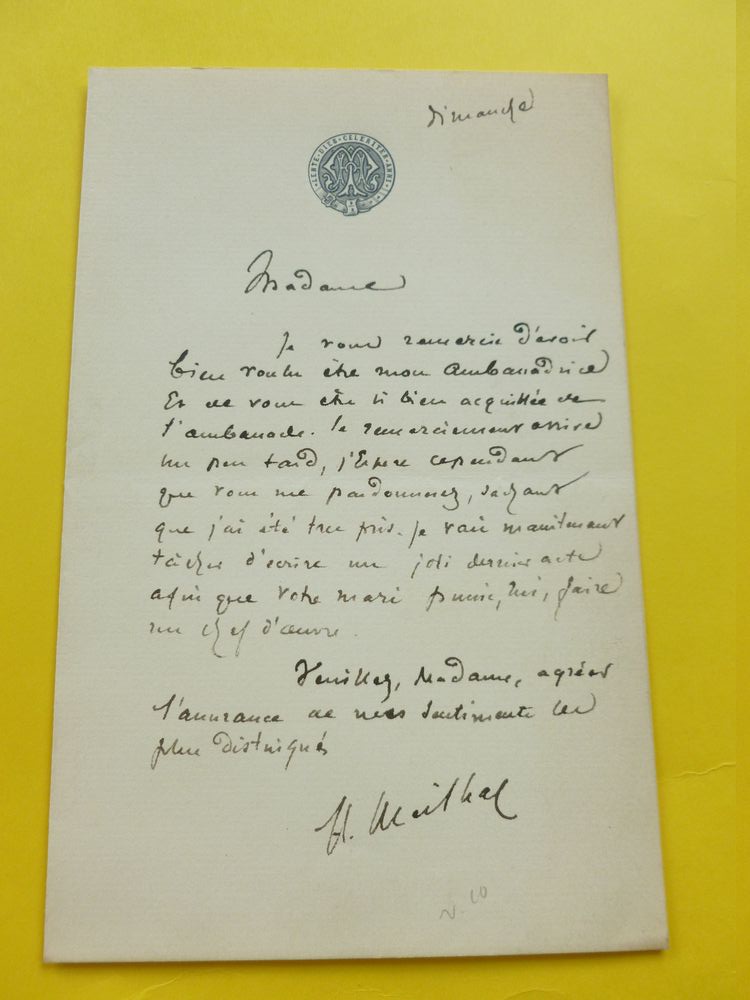 dimanche
LENTE · DIES · CELERITER · ANNI
Madame
Je vous remercie d'avoir
bien voulu être mon ambassadrice
Et de vous être si bien acquittée de
l'ambassade. Le remerciement arrive
un peu tard, j'Espère cependant
que vous me pardonnerez, sachant
que j'ai été très pris. Je vais maintenant
tâcher d'écrire un joli dernier acte
afin que votre mari puisse, lui, faire
un chef d'œuvre.
Veuillez, Madame, agréer
l'assurance de mes sentiments les
plus distingués
H. Meilhac